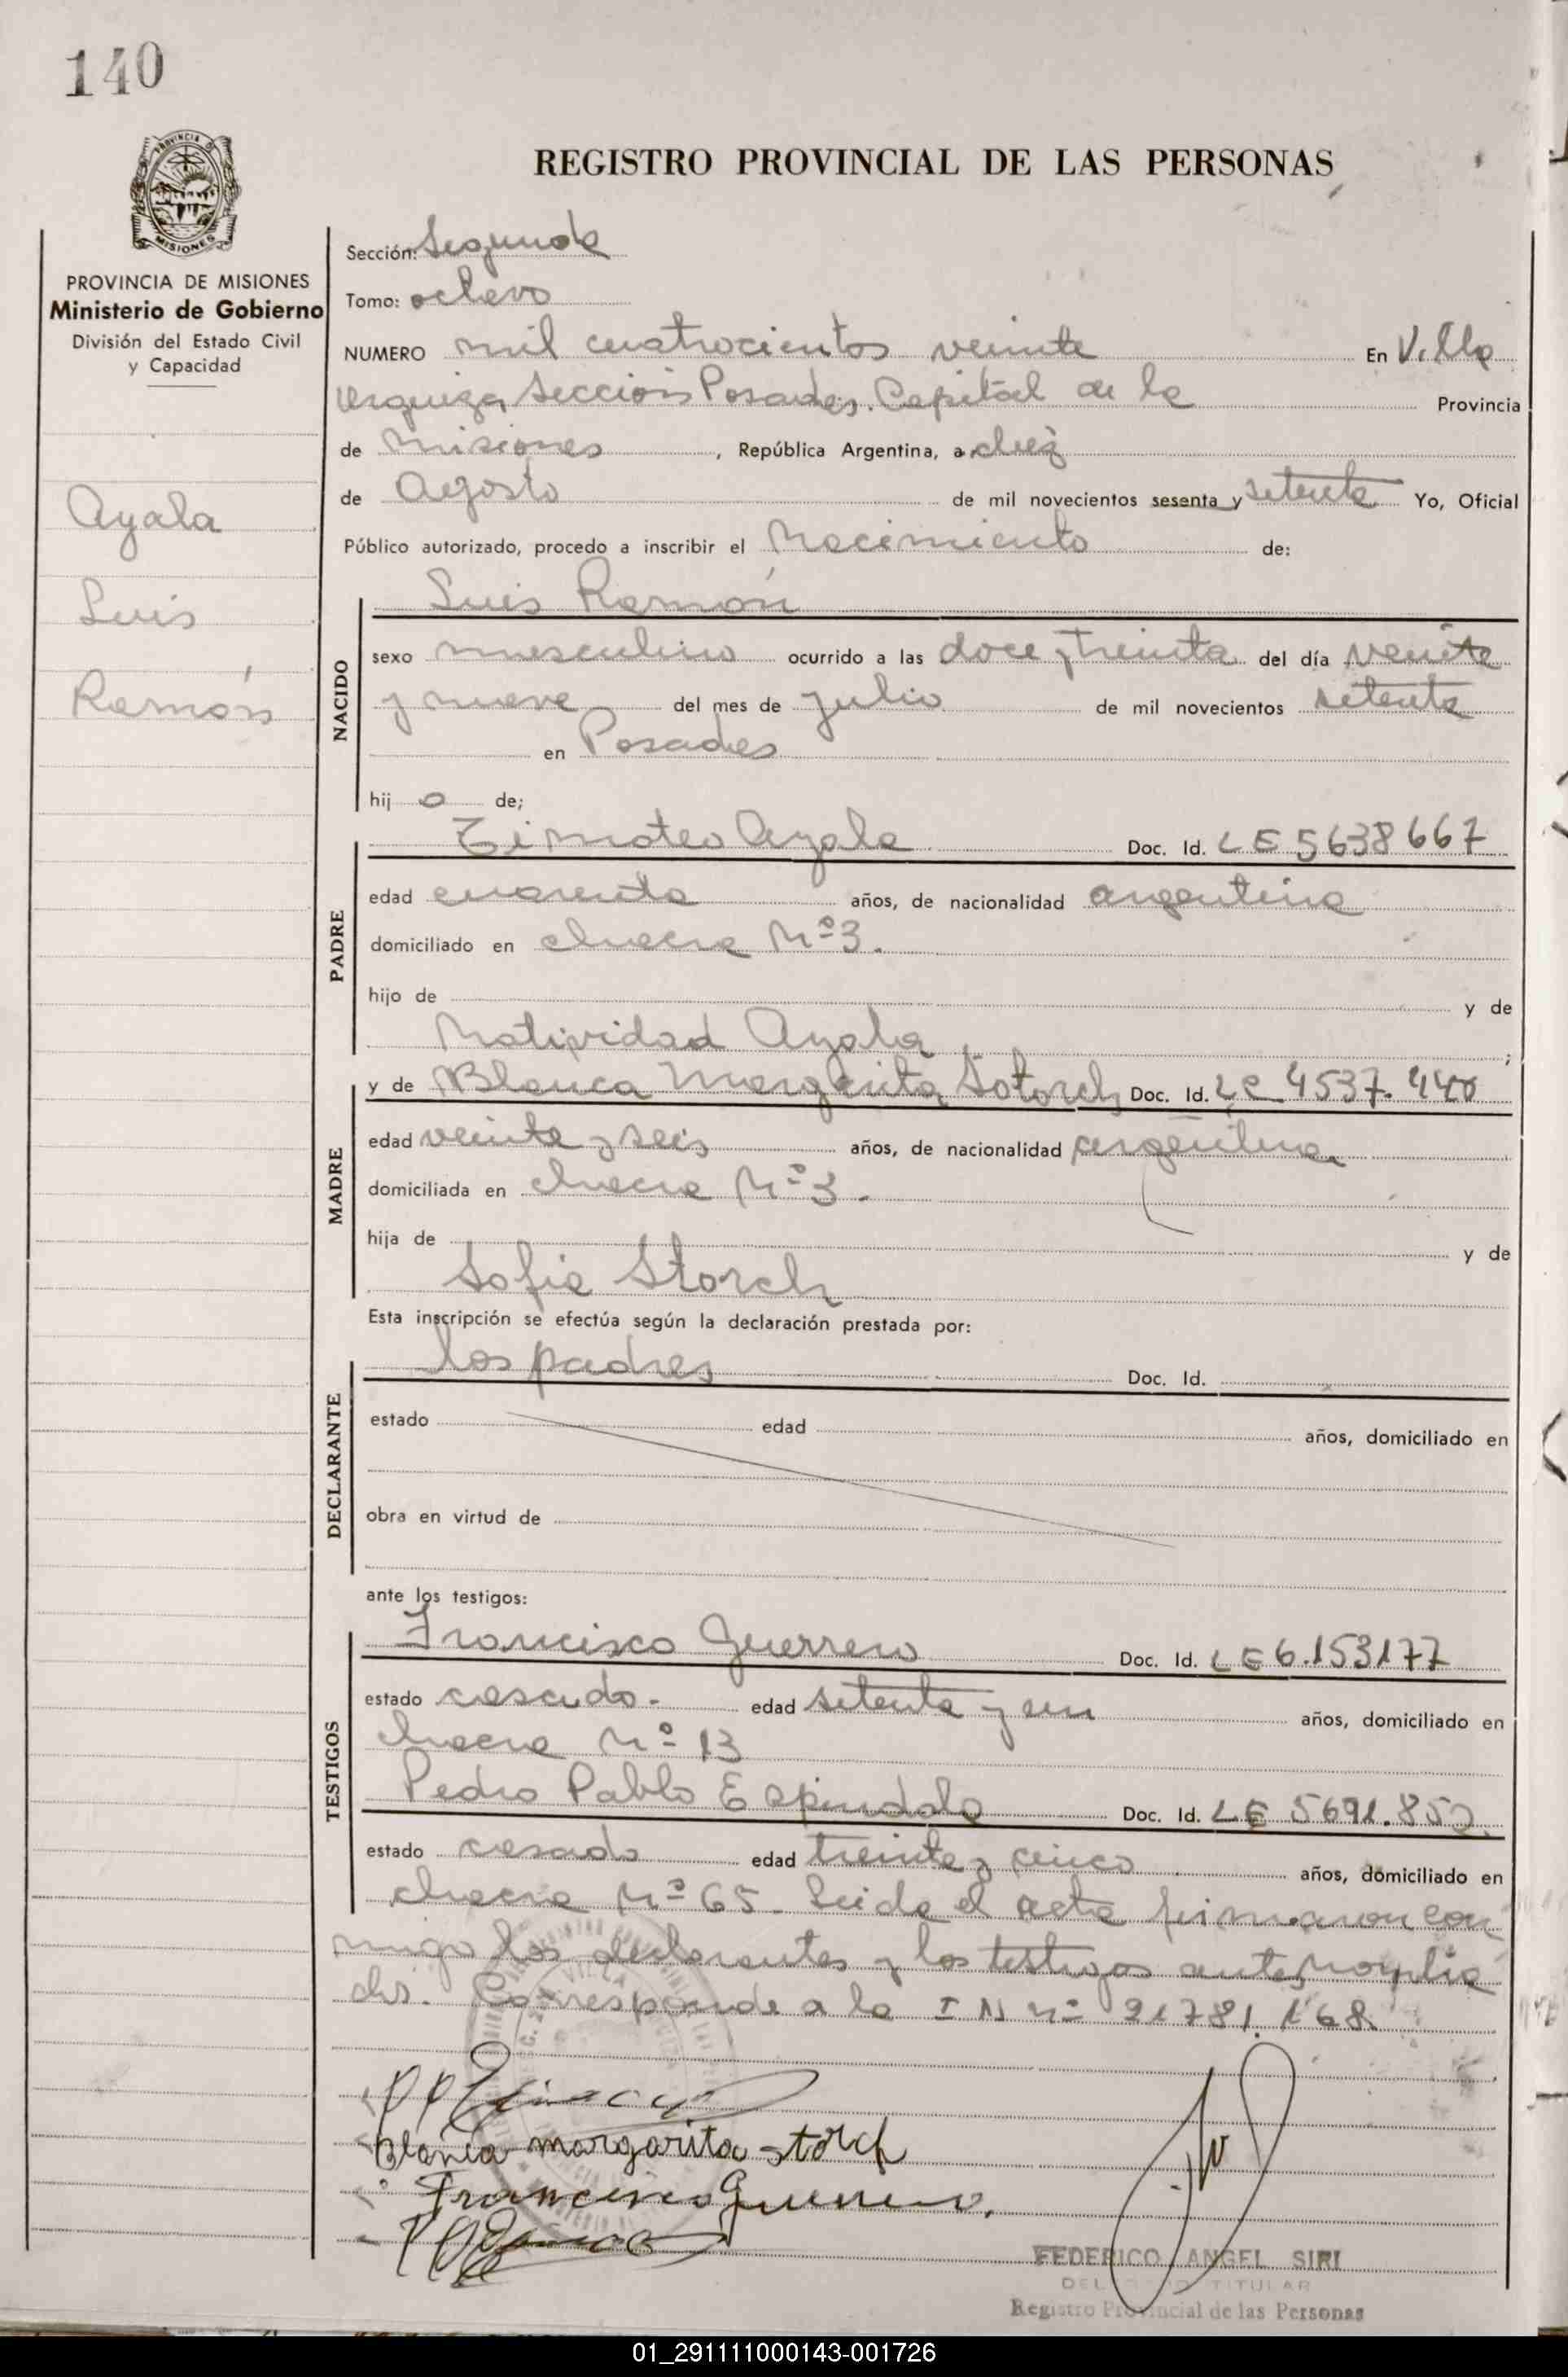 140
PROVINCIA DE
MISIONES
REGISTRO PROVINCIAL DE LAS PERSONAS
PROVINCIA DE MISIONES
Ministerio de Gobierno
División del Estado Civil
y Capacidad
Ayala
Luis
Ramón
Sección: Segunda
Tomo: octavo
NUMERO mil cuatrocientos veinte En Villa
Urquiza, Sección Posadas, Capital de la Provincia
de Misiones, República Argentina, a diez
de Agosto de mil novecientos sesenta y setenta Yo, Oficial
Público autorizado, procedo a inscribir el Nacimiento de:
NACIDO
Luis Ramón
sexo masculino ocurrido a las doce y treinta del día veinte
y nueve del mes de julio de mil novecientos setenta
en Posadas
hij o de;
PADRE
Timoteo Ayala Doc. Id. LE 5638667
edad cuarenta años, de nacionalidad argentina
domiciliado en chacra Nº 3.
hijo de y de
Natividad Ayala ;
MADRE
y de Blanca Margarita Sotorch Doc. Id. LC 4537.440
edad veinte y seis años, de nacionalidad argentina
domiciliada en chacra Nº 3.
hija de y de
Sofia Storch
Esta inscripción se efectúa según la declaración prestada por:
DECLARANTE
los padres Doc. Id.
estado edad años, domiciliado en
obra en virtud de
ante los testigos:
TESTIGOS
Francisco Guerrero Doc. Id. LE 6.153177
estado casado. edad setenta y un años, domiciliado en
chacra Nº 13
Pedro Pablo Espindola Doc. Id. LE 5691.852.
estado casado edad treinta y cinco años, domiciliado en
chacra Nº 65. Leida el acta firmaron con
migo los declarantes y los testigos
Corresponde a la I N nº 21781.168.
Blanca margarita storch
Francisco Guerrero.
FEDERICO ANGEL SIRI
TITULAR
Registro Provincial de las Personas
01_291111000143-001726